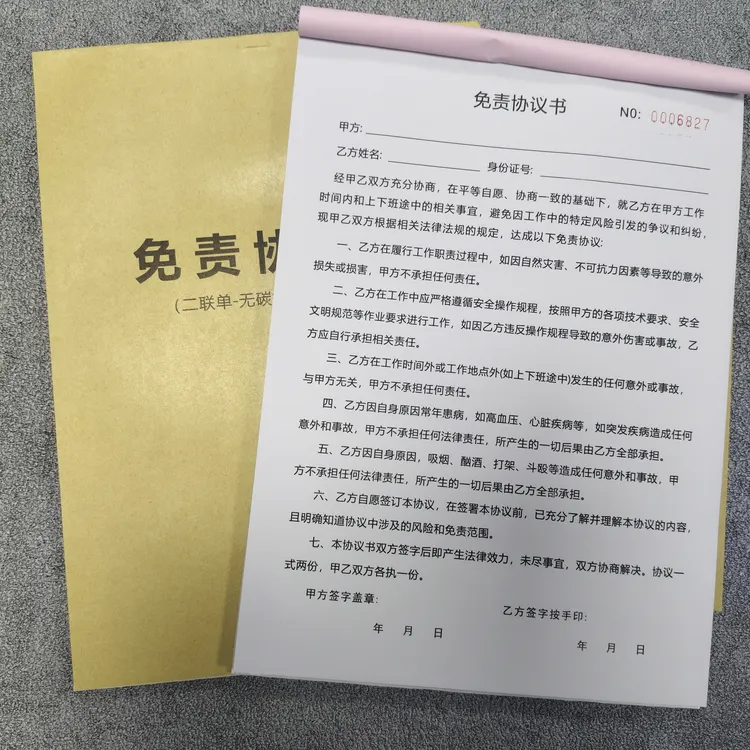 免责协
(二联单-无碳
免责协议书
NO: 0006827
甲方:
乙方姓名: 身份证号:
经甲乙双方充分协商，在平等自愿、协商一致的基础下，就乙方在甲方工作
时间内和上下班途中的相关事宜，避免因工作中的特定风险引发的争议和纠纷，
现甲乙双方根据相关法律法规的规定，达成以下免责协议:
一、乙方在履行工作职责过程中，如因自然灾害、不可抗力因素等导致的意外
损失或损害，甲方不承担任何责任。
二、乙方在工作中应严格遵循安全操作规程，按照甲方的各项技术要求、安全
文明规范等作业要求进行工作，如因乙方违反操作规程导致的意外伤害或事故，乙
方应自行承担相关责任。
三、乙方在工作时间外或工作地点外(如上下班途中)发生的任何意外或事故，
与甲方无关，甲方不承担任何责任。
四、乙方因自身原因常年患病，如高血压、心脏疾病等，如突发疾病造成任何
意外和事故，甲方不承担任何法律责任，所产生的一切后果由乙方全部承担。
五、乙方因自身原因，吸烟、酗酒、打架、斗殴等造成任何意外和事故，甲
方不承担任何法律责任，所产生的一切后果由乙方全部承担。
六、乙方自愿签订本协议，在签署本协议前，已充分了解并理解本协议的内容，
且明确知道协议中涉及的风险和免责范围。
七、本协议书双方签字后即产生法律效力，未尽事宜，双方协商解决。协议一
式两份，甲乙双方各执一份。
甲方签字盖章: 乙方签字按手印:
年 月 日 年 月 日